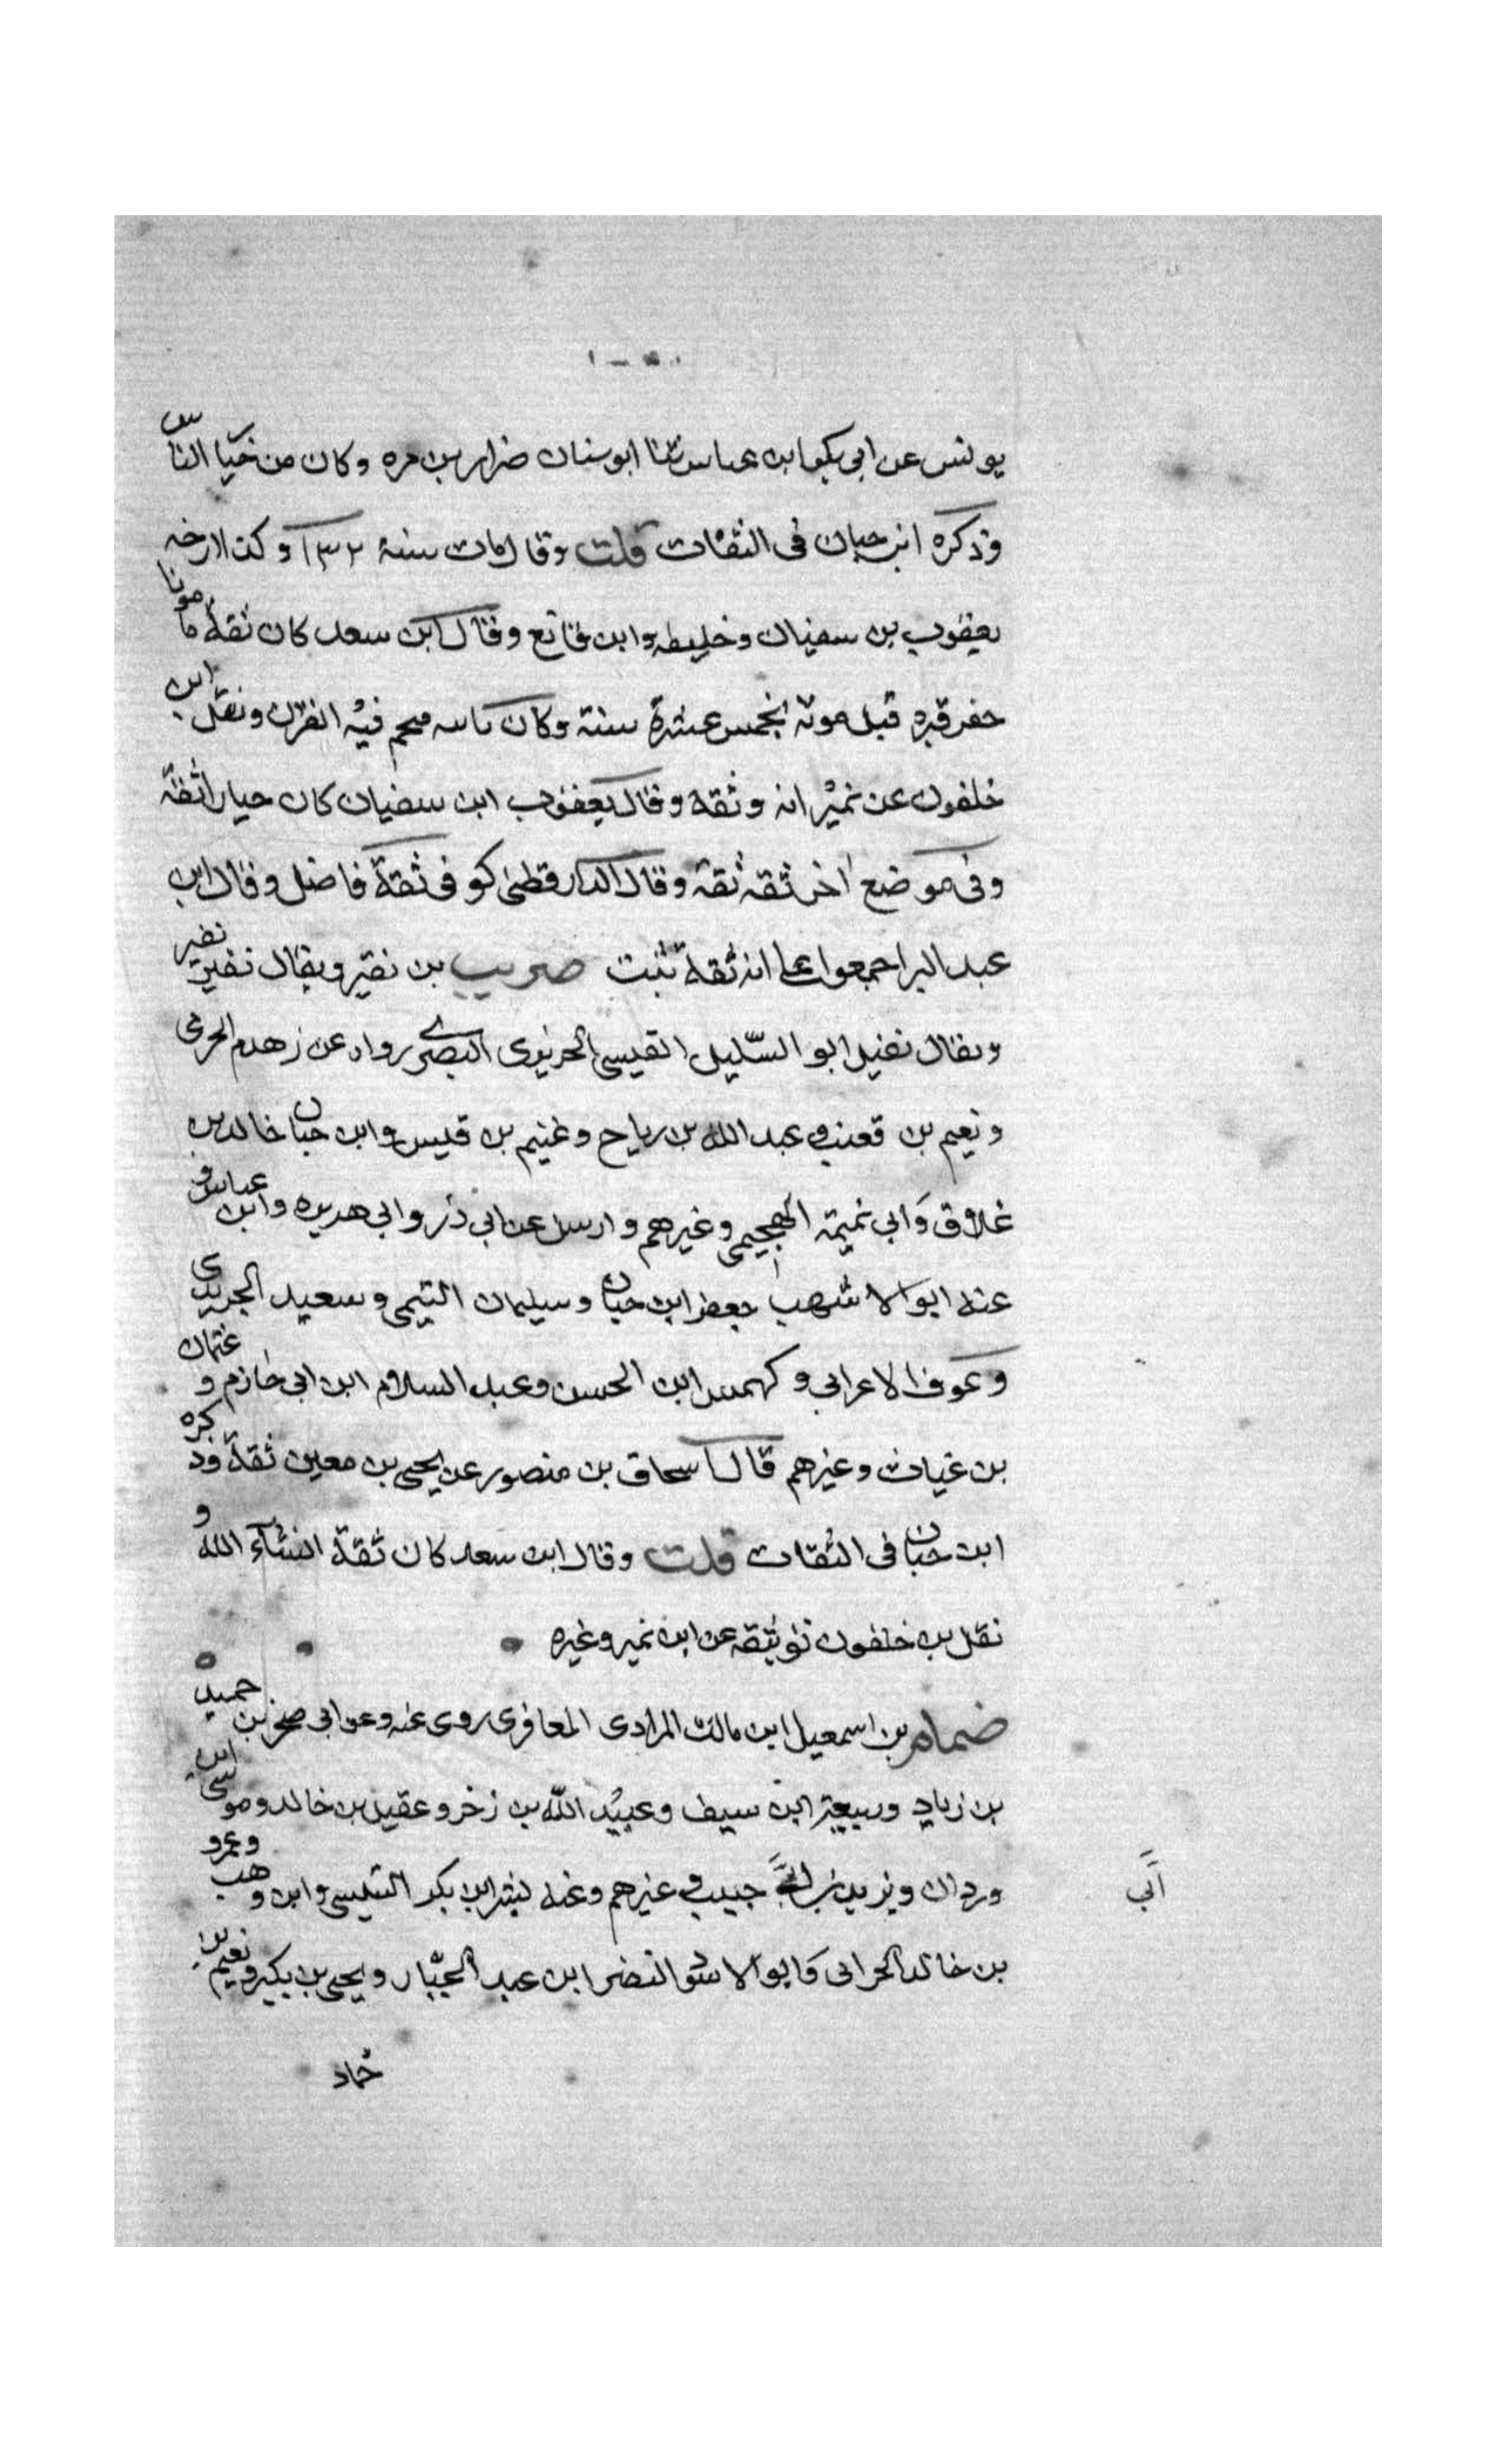 يونس عن ابي بكر ابن عباس ثنا ابو سنان ضرار بن مره وكان من خيا الناس
وذكره ابن حبان في الثقات قلت وقال مات سنة ١٣٢ وكذا ارخه
يعقوب بن سفيان وخليفه وابن قانع وقال ابن سعد كان ثقة مامونا
حفر قبره قبل موته بخمس عشرة سنة وكان ياتيه فيختم فيه القران ونقل ابن
خلفون عن نمير انه وثقه وقال يعقوب ابن سفيان كان خيارا ثقة
وفي موضع اخر ثقه ثقة وقال الدارقطني كوفي ثقة فاضل وقال ابن
عبد البر اجمعوا على انه ثقة ثبت ضريب بن نقير ويقال نفير
ويقال نفيل ابو السليل القيسي الجريري البصري روا عن زهدم الجرمي
ونعيم بن قعنب وعبد الله بن رياح وغنيم بن قيس وابن حبان خالد بن
غلاق وابي تميمة الهجيمي وغيرهم وارسل عن ابي ذر وابي هريره وابن عباس و
عنه ابو الاشهب جعفر ابن حبان وسليمان التيمي وسعيد الجريري
وعوف الاعرابي وكهمس ابن الحسن وعبد السلام ابن ابي حازم وعثمان
بن غياث وغيرهم قال اسحاق بن منصور عن يحيى بن معين ثقة وذكره
ابن حبان في الثقات قلت وقال ابن سعد كان ثقة انشآء الله و
نقل بن خلفون توثيقه عن ابن نمير وغيره
ضمام بن اسمعيل ابن مالك المرادى المعافرى روى عنه وعن ابي صخر بن حميد
بن زياد وربيعة ابن سيف وعبيد الله بن زخر وعقيل بن خالد وموسى ابن
وردان ويزيد بن ابي حبيب وغيرهم وعنه بشر ابن بكر التنيسي وابن وهب وعمرو
بن خالد الحراني وابو الاسود النضر ابن عبد الجبار ويحيى بن بكير ونعيم بن
حماد